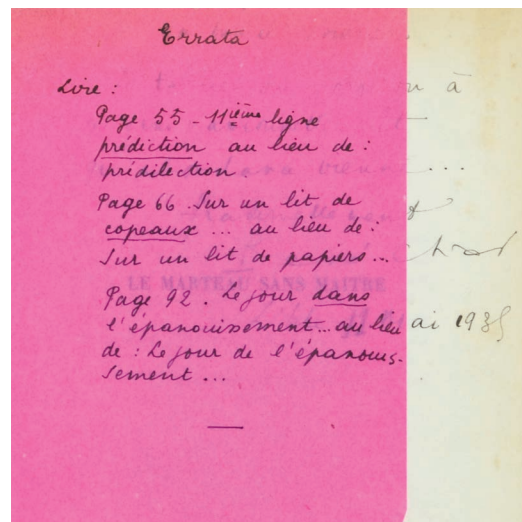 Errata
Lire :
Page 55 - 11ième ligne
prédiction au lieu de :
prédilection.
Page 66 Sur un lit de
copeaux ... au lieu de :
Sur un lit de papiers ...
LE MARTEAU SANS MAITRE
Page 92. Le jour dans
l'épanouissement ... au lieu
de : Le jour de l'épanouis-
sement ...
à
...
Char
ai 1935